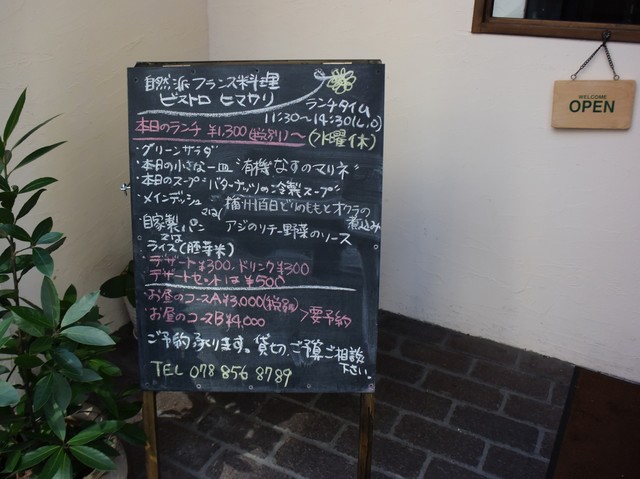 自然派フランス料理
ビストロ ヒマワリ
ランチタイム
11:30～14:30(L.O)
本日のランチ ¥1,300(税別)～
(水曜休)
・グリーンサラダ
・本日の小さな一皿"有機なすのマリネ"
・本日のスープ"バターナッツの冷製スープ"
・メインディッシュ 播州百日どりのももとオクラの煮込み
または
アジのソテー野菜のソース
自家製パン
または
ライス(胚芽米)
・デザート¥300、ドリンク¥300
デザートセットは¥500
・お昼のコースA¥3,000(税別)
・お昼のコースB¥4,000
>要予約
ご予約承ります。貸切、ご予算ご相談下さい。
TEL 078 856 8789
WELCOME
OPEN